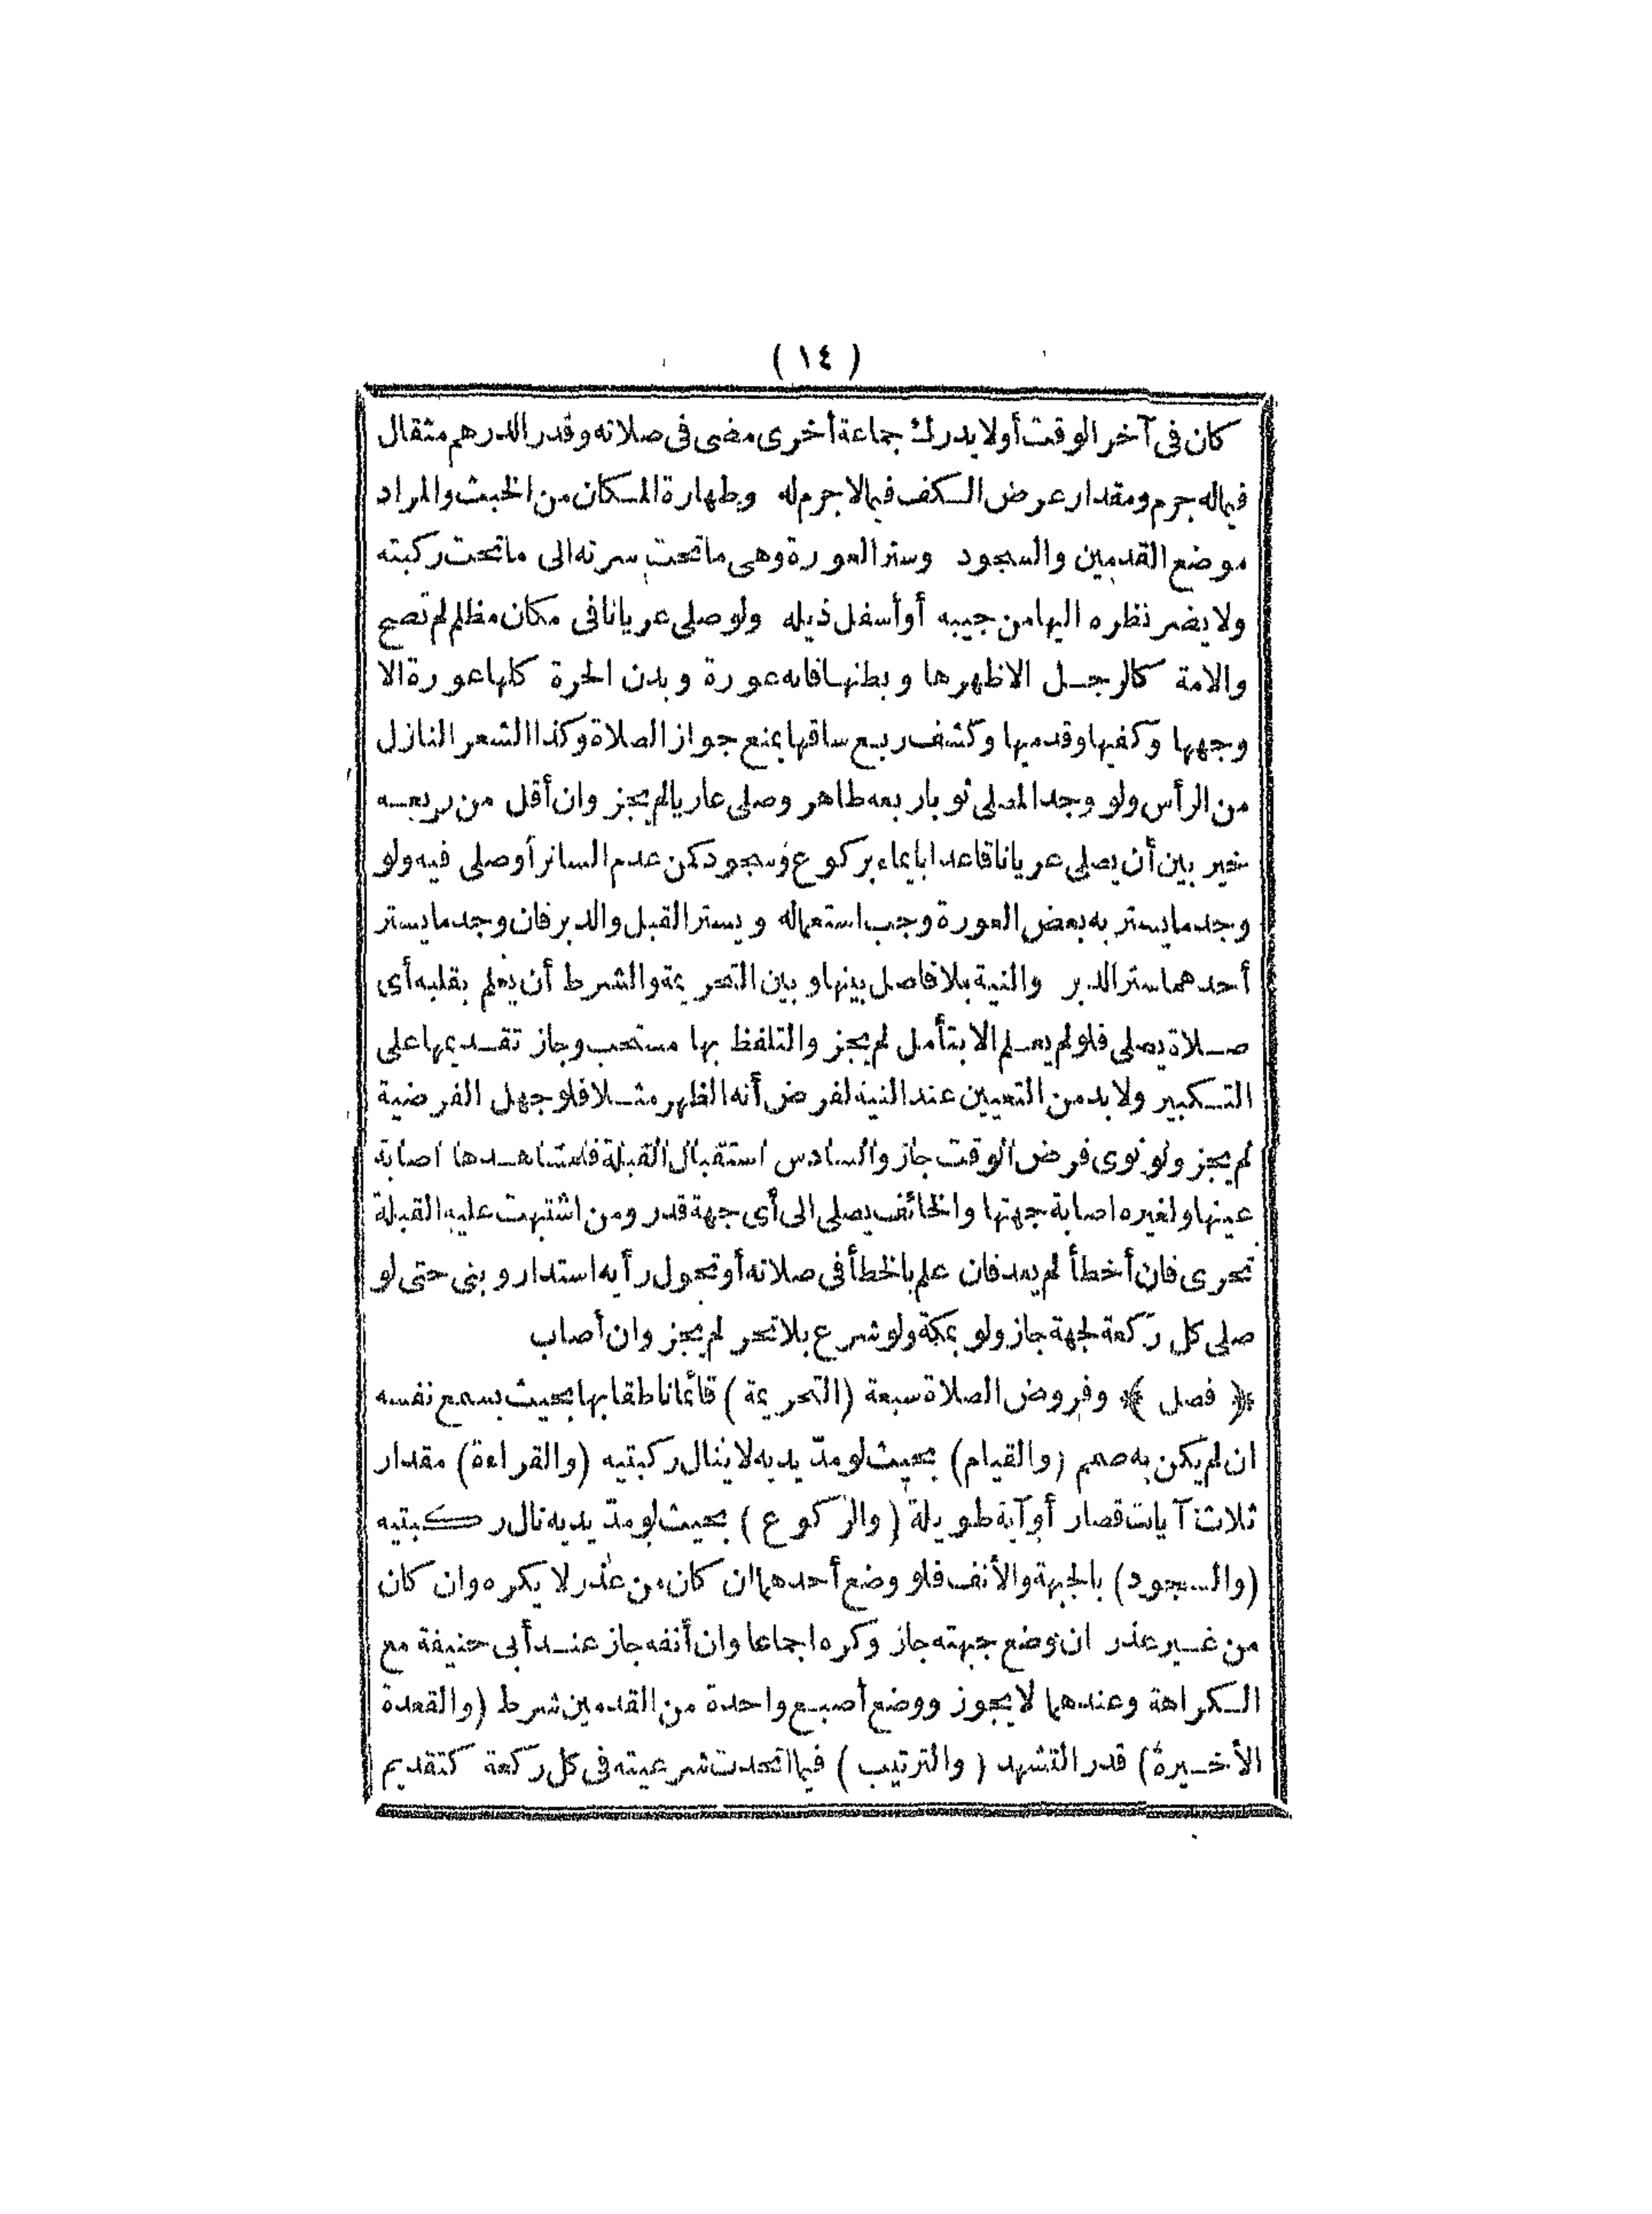 ( ١٤ )
كان فى آخر الوقت أولا يدرك جماعة أخرى مضى فى صلاته وقدر الدرهم مثقال
فيماله جرم ومقدار عرض الكف فيمالا جرم له وطهارة المكان من الخبث والمراد
موضع القدمين والسجود وستر العورة وهى ماتحت سرته الى ماتحت ركبته
ولا يضر نظره اليها من جيبه أو أسفل ذيله ولو صلى عريانا فى مكان مظلم لم تصح
والامة كالرجل الا ظهرها وبطنها فانه عورة وبدن الحرة كلها عورة الا
وجهها وكفيها وقدميها وكشف ربع ساقها يمنع جواز الصلاة وكذا الشعر النازل
من الرأس ولو وجد المصلى ثوبا ربعه طاهر وصلى عاريا لم يجز وان أقل من ربعه
خير بين أن يصلى عريانا قاعدا بايماء بركوع وسجود كمن عدم الساتر أو صلى فيه ولو
وجد مايستر به بعض العورة وجب استعماله ويستر القبل والدبر فان وجد مايستر
أحدهما ستر الدبر والنية بلا فاصل بينها وبين التحريمة والشرط أن يعلم بقلبه أى
صلاة يصلى فلو لم يعلم الا بتأمل لم يجز والتلفظ بها مستحب وجاز تقديمها على
التكبير ولا بد من التعيين عند النية لفرض أنه الظهر مثلا فلو جهل الفرضية
لم يجز ولو نوى فرض الوقت جاز والسادس استقبال القبلة فلمشاهدها اصابة
عينها ولغيره اصابة جهتها والخائف يصلى الى أى جهة قدر ومن اشتبهت عليه القبلة
تحرى فان أخطأ لم يعد فان علم بالخطأ فى صلاته أو تحول رأيه استدار وبنى حتى لو
صلى كل ركعة لجهة جاز ولو بمكة ولو شرع بلا تحر لم يجز وان أصاب
﴿ فصل ﴾ وفروض الصلاة سبعة (التحريمة) قائما ناطقا بها بحيث يسمع نفسه
ان لم يكن به صمم (والقيام) بحيث لو مدّ يديه لا ينال ركبتيه (والقراءة) مقدار
ثلاث آيات قصار أو آية طويلة (والركوع) بحيث لو مدّ يديه نال ركبتيه
(والسجود) بالجبهة والأنف فلو وضع أحدهما ان كان من عذر لا يكره وان كان
من غير عذر ان وضع جبهته جاز وكره اجماعا وان أنفه جاز عند أبى حنيفة مع
الكراهة وعندهما لا يجوز ووضع أصبع واحدة من القدمين شرط (والقعدة
الأخيرة) قدر التشهد (والترتيب) فيما اتحدت شرعيته فى كل ركعة كتقديم